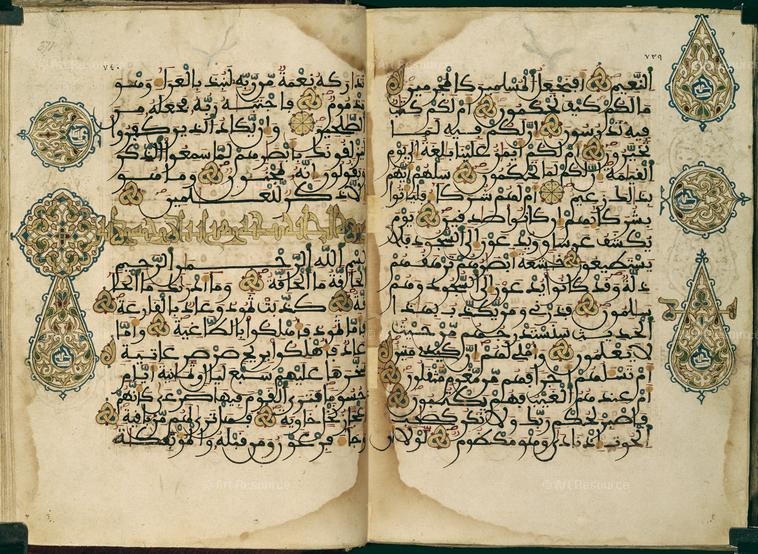 ٧٣٩
النعيم أفنجعل المسلمين كالمجرمين
ما لكم كيف تحكمون أم لكم كتب
فيه تدرسون إن لكم فيه لما
تخيرون أم لكم أيمن علينا بلغة إلى يوم
القيمة إن لكم لما تحكمون سلهم أيهم
بذلك زعيم أم لهم شركا فلياتوا
بشركائهم إن كانوا صدقين يوم
يكشف عن ساق ويدعون إلى السجود فلا
يستطيعون خشعة أبصرهم ترهقهم
ذلة وقد كانوا يدعون إلى السجود وهم
سلمون فذرني ومن يكذب بهذا
الحديث سنستدرجهم من حيث
لا يعلمون وأملي لهم إن كيدي متين
أم تسئلهم أجرا فهم من مغرم مثقلون
أم عندهم الغيب فهم يكتبون
فاصبر لحكم ربك ولا تكن كصحب
الحوت إذ نادى وهو مكظوم لولا أن
٧٤٠
تداركه نعمة من ربه لنبذ بالعرا وهو
مذموم فاجتبه ربه فجعله من
الصلحين وإن يكاد الذين كفروا
ليزلقونك بأبصرهم لما سمعوا الذكر
ويقولون إنه لمجنون وما هو
إلا ذكر للعلمين
بسم الله الرحمن الرحيم
الحاقة ما الحاقة وما أدريك ما الحا
قة كذبت ثمود وعاد بالقارعة
فأما ثمود فأهلكوا بالطاغية وأما
عاد فأهلكوا بريح صرصر عاتية
سخرها عليهم سبع ليال وثمنية أيام
حسوما فترى القوم فيها صرعى كأنهم
أعجاز نخل خاوية فهل ترى لهم من باقية
وجا فرعون ومن قبله والموتفكة
© Art Resource
© Art Resource